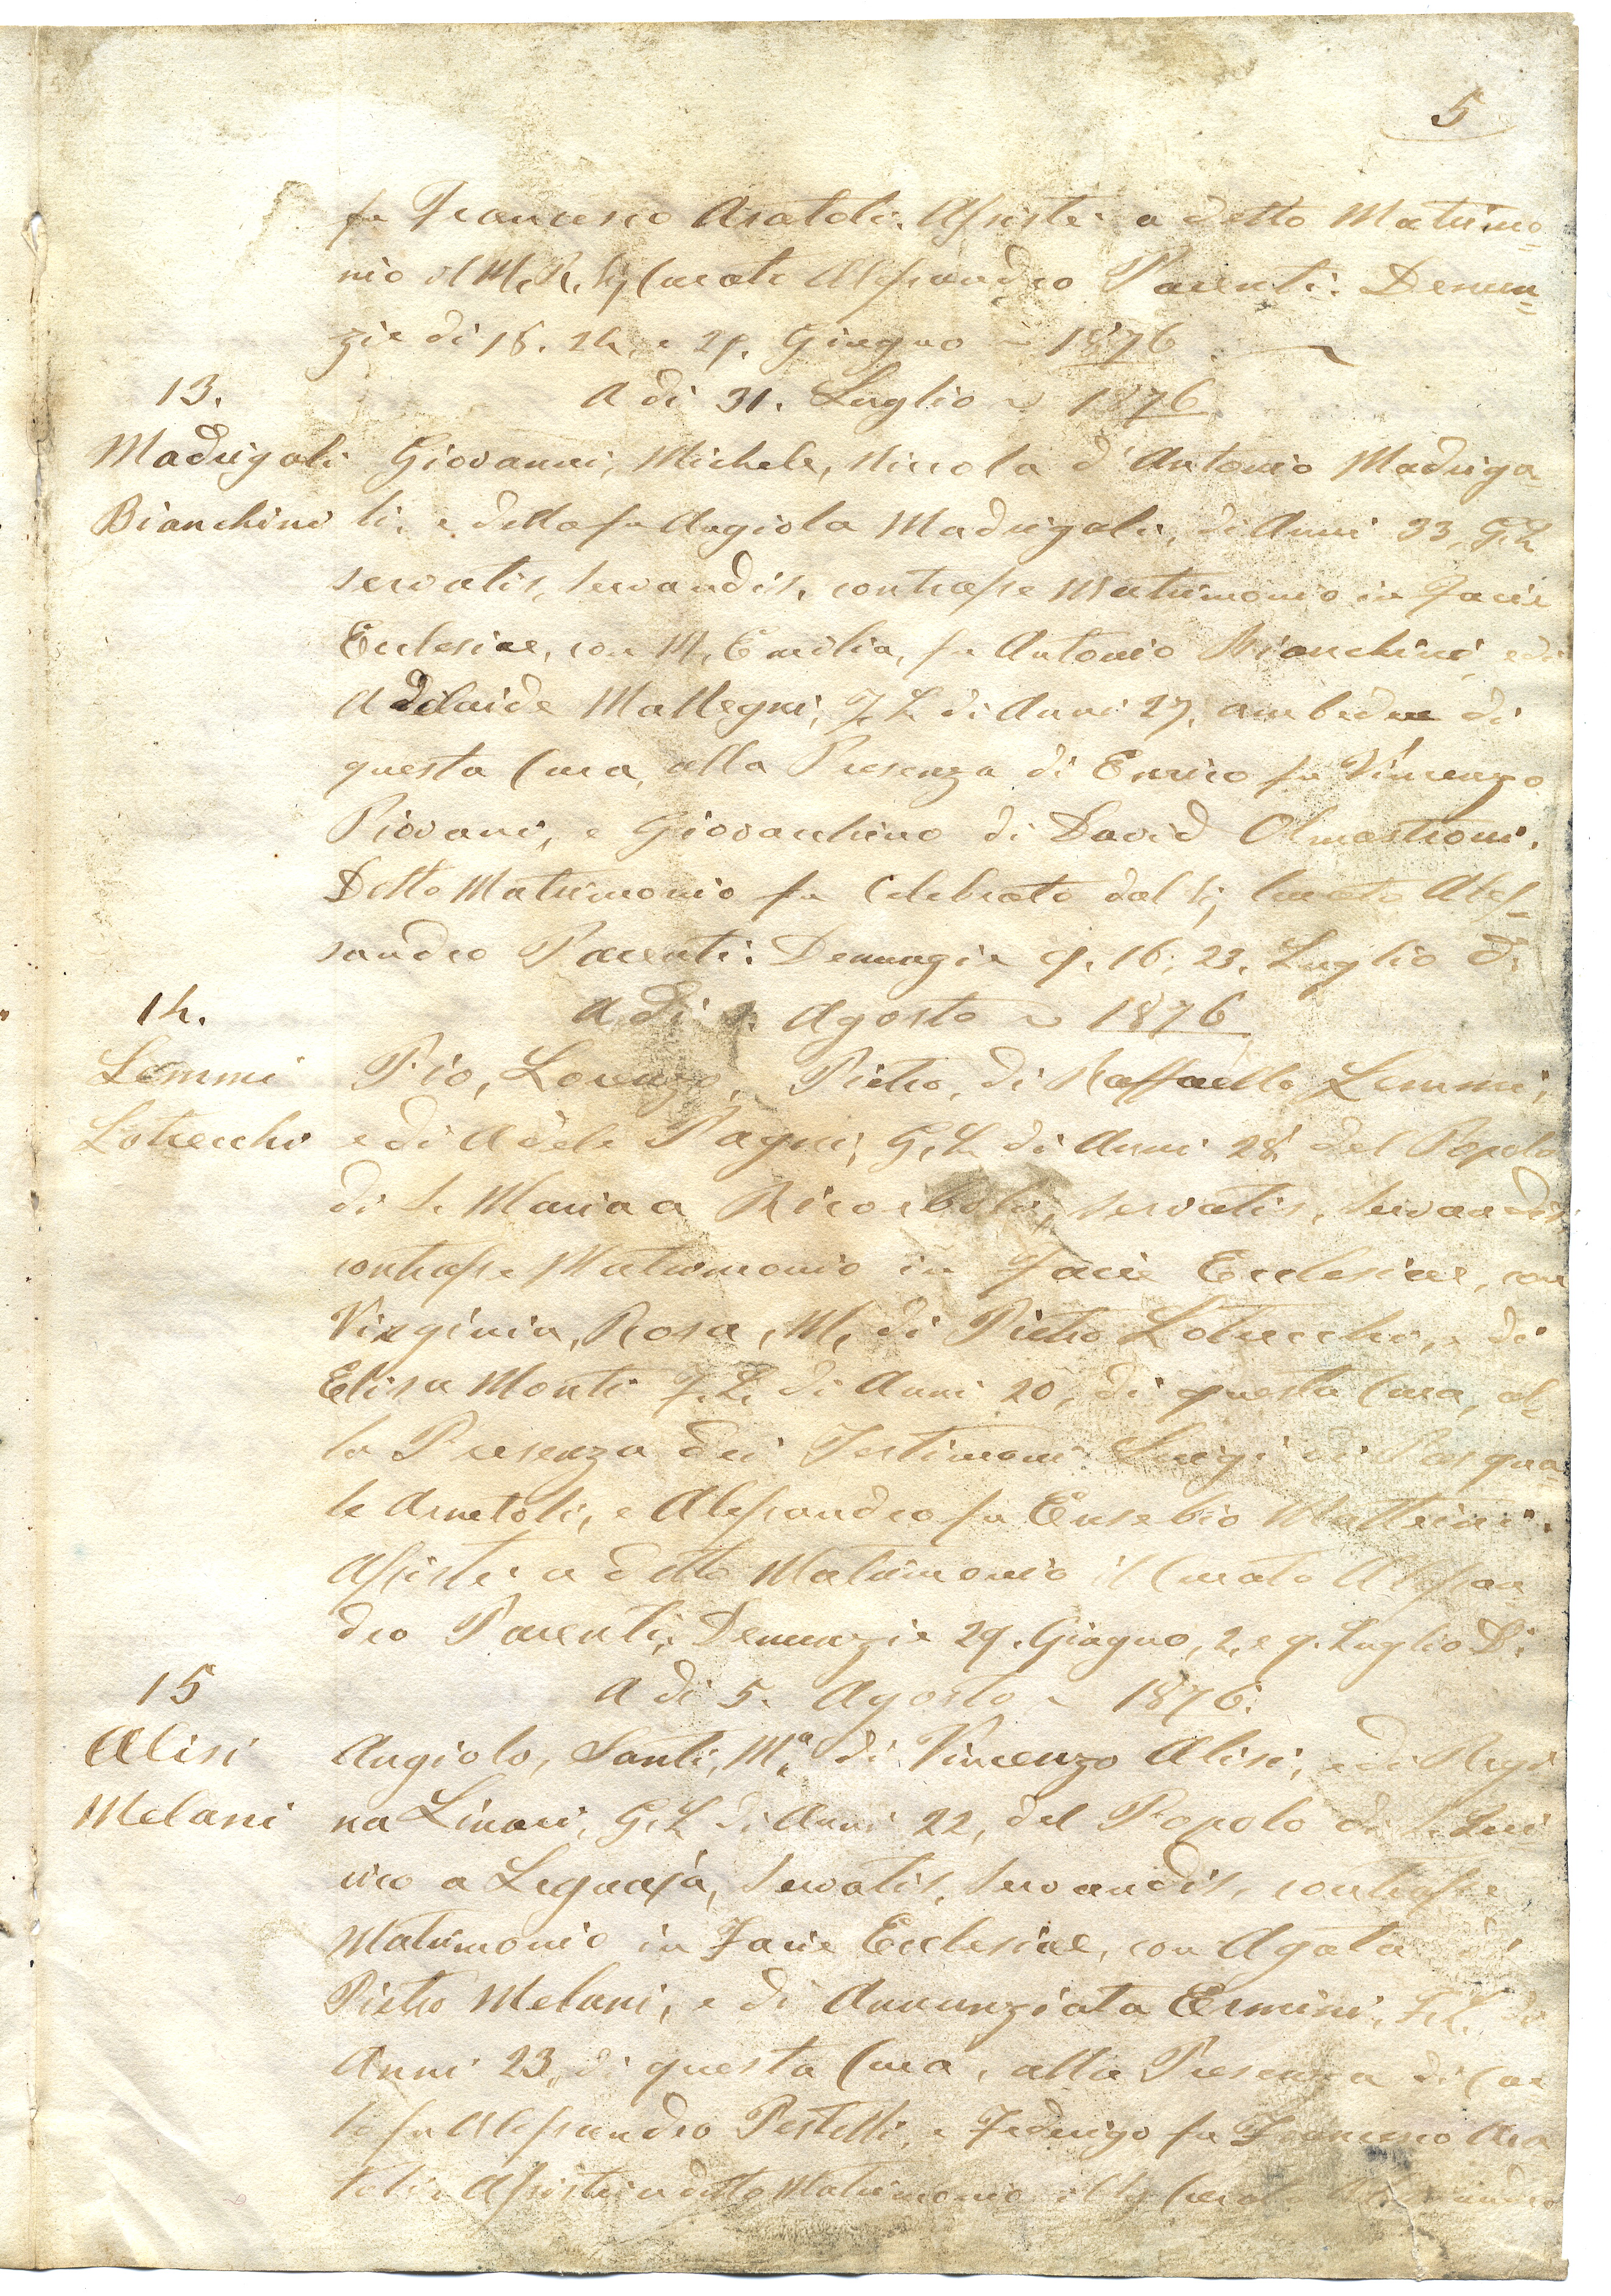 5
fu Francesco Aratoli. Assistè a detto Matrimo-
nio il M. R. Sig Curato Alessandro Parenti. Denun-
zie di 18. 24, e 29. Giugno ~ 1876.
13.
A di 31. Luglio ~ 1876
Madrigali
Giovanni, Michele, Niccola d'Antonio Madriga-
Bianchini
li. e della fu Angiola Madrigali, di Anni 33, G. L.
servatis, servandis, contrasse Matrimonio in Facie
Ecclesiae, con M. Emilia, fu Antonio Bianchini, e di
Adelaide Mallegni, F. L. di Anni 27, ambedue di
questa Cura, alla Presenza di Enrico fu Vincenzo
Piovani, e Giovacchino di David Olmastroni.
Detto Matrimonio fu Celebrato dal Sig Curato Ales-
sandro Parenti. Denunzie 9. 16, 23. Luglio D.
14.
A di Agosto ~ 1876
Lemmi
Pio, Lorenzo, Pietro, di Raffaello Lemmi,
Lotrecchi
e di Adele Pagni, G. L. di Anni 28 del Popolo
di S. Maria a Ricorboli, servatis, servandis
contrasse Matrimonio in Facie Ecclesiae, con
Virginia, Rosa, M. di Pietro Lotrecchi, e di
Elisa Monti F. L. di Anni 20, di questa Cura, al-
la Presenza dei Testimoni Luigi di Pasqua-
le Arnetoli, e Alessandro fu Eusebio Matteini.
Assistè a detto Matrimonio il Curato Alessan
dro Parenti, Denunzie 29. Giugno, 2, e 9. Luglio D.
15
A di 5. Agosto ~ 1876.
Alisi
Angiolo, Santi, Mª di Vincenzo Alisi, e di Regi
Melani
na Linari, G. L. di Anni 22, del Popolo di S. Qui
rico a Legnaja, servatis, servandis, contrasse
Matrimonio in Facie Ecclesiae, con Agata di
Pietro Melani, e di Annunziata Ermini, F. L. di
Anni 23, di questa Cura, alla Presenza di Car
lo fu Alessandro Pestelli, e Federigo fu Francesco Ara
toli. Assistè a detto Matrimonio il Sig Curato Alessandro